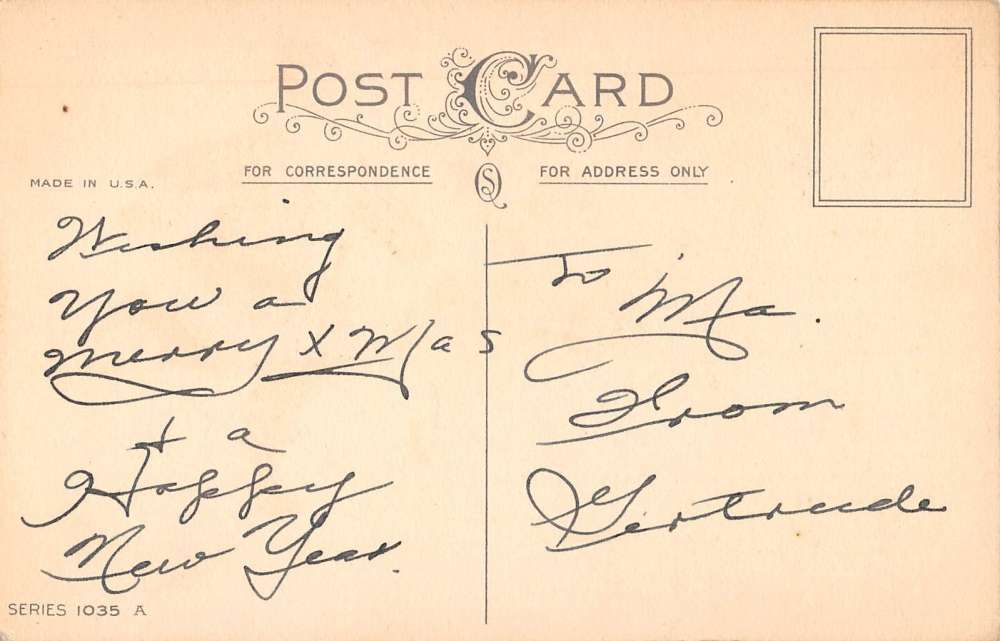 POST CARD
FOR CORRESPONDENCE
FOR ADDRESS ONLY
MADE IN U.S.A.
Wishing
You a
Merry X Mas
+ a
Happy
New Year.
To Ma.
From
Gertrude
SERIES 1035 A